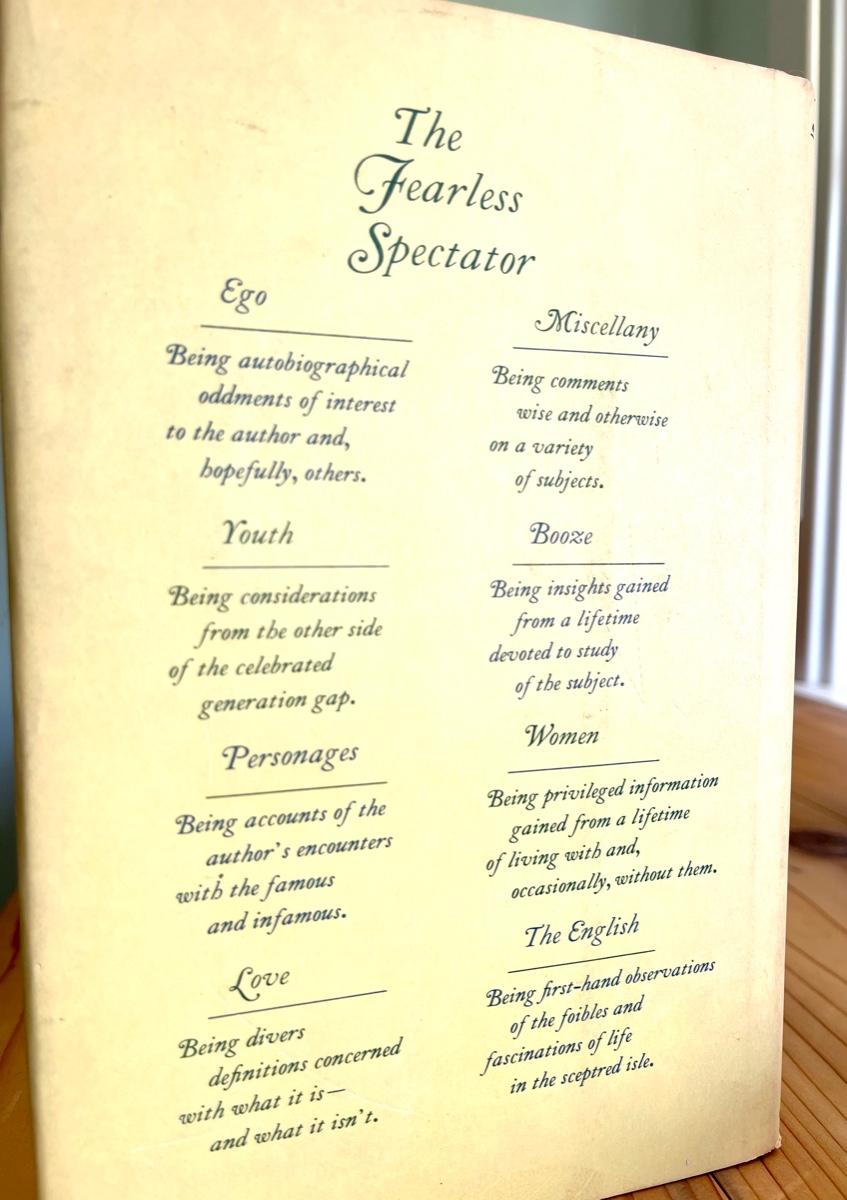 The
Fearless
Spectator
Ego
Being autobiographical
oddments of interest
to the author and,
hopefully, others.
Youth
Being considerations
from the other side
of the celebrated
generation gap.
Personages
Being accounts of the
author's encounters
with the famous
and infamous.
Love
Being divers
definitions concerned
with what it is—
and what it isn't.
Miscellany
Being comments
wise and otherwise
on a variety
of subjects.
Booze
Being insights gained
from a lifetime
devoted to study
of the subject.
Women
Being privileged information
gained from a lifetime
of living with and,
occasionally, without them.
The English
Being first-hand observations
of the foibles and
fascinations of life
in the sceptred isle.